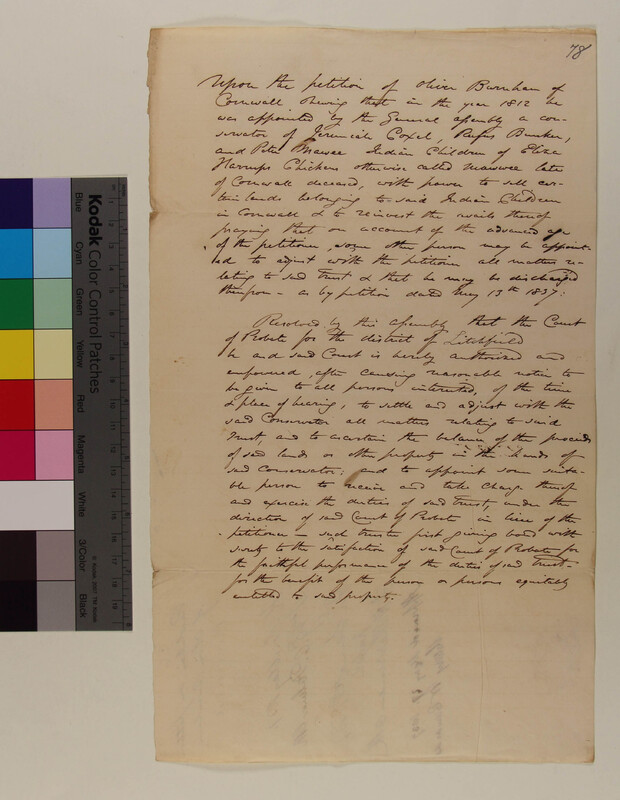 78
Upon the petition of Oliver Burnham of
Cornwall shewing that in the year 1812 he
was appointed by the General assembly a con-
servator of Jeremiah Coxel, Rufus Bunker,
and Peter Mawee Indian Children of Eliza
Warrups Chickens otherwise called Mawwee late
of Cornwall deceased, with power to sell cer-
tain lands belonging to said Indian Children
in Cornwall & to reinvest the avails thereof
praying that on account of the advanced age
of the petitioner, some other person may be appoint-
ed to adjust with the petitioner all matters re-
lating to said trust & that he may be discharged
therefrom - as by petition dated May 13th 1837:
Resolved by this assembly that the Court
of Probate for the district of Litchfield
be and said Court is hereby authorised and
empowered, after causing reasonable notice to
be given to all persons interested, of the time
& place of hearing, to settle and adjust with the
said Conservator all matters relating to said
trust, and to ascertain the balance of the proceeds
of said lands or other property in the hands of
said Conservator: and to appoint some suita-
ble person to receive and take charge thereof
and exercise the duties of said trust, under the
direction of said Court of Probate in lieu of the
petitioner - such trustee first giving bond with
surety to the satisfaction of said Court of Probate for
the faithful performance of the duties of said trust
for the benefit of the person or persons equitably
entitled to said property.
Kodak
Color Control Patches
Blue
Cyan
Green
Yellow
Red
Magenta
White
3/Color
Black